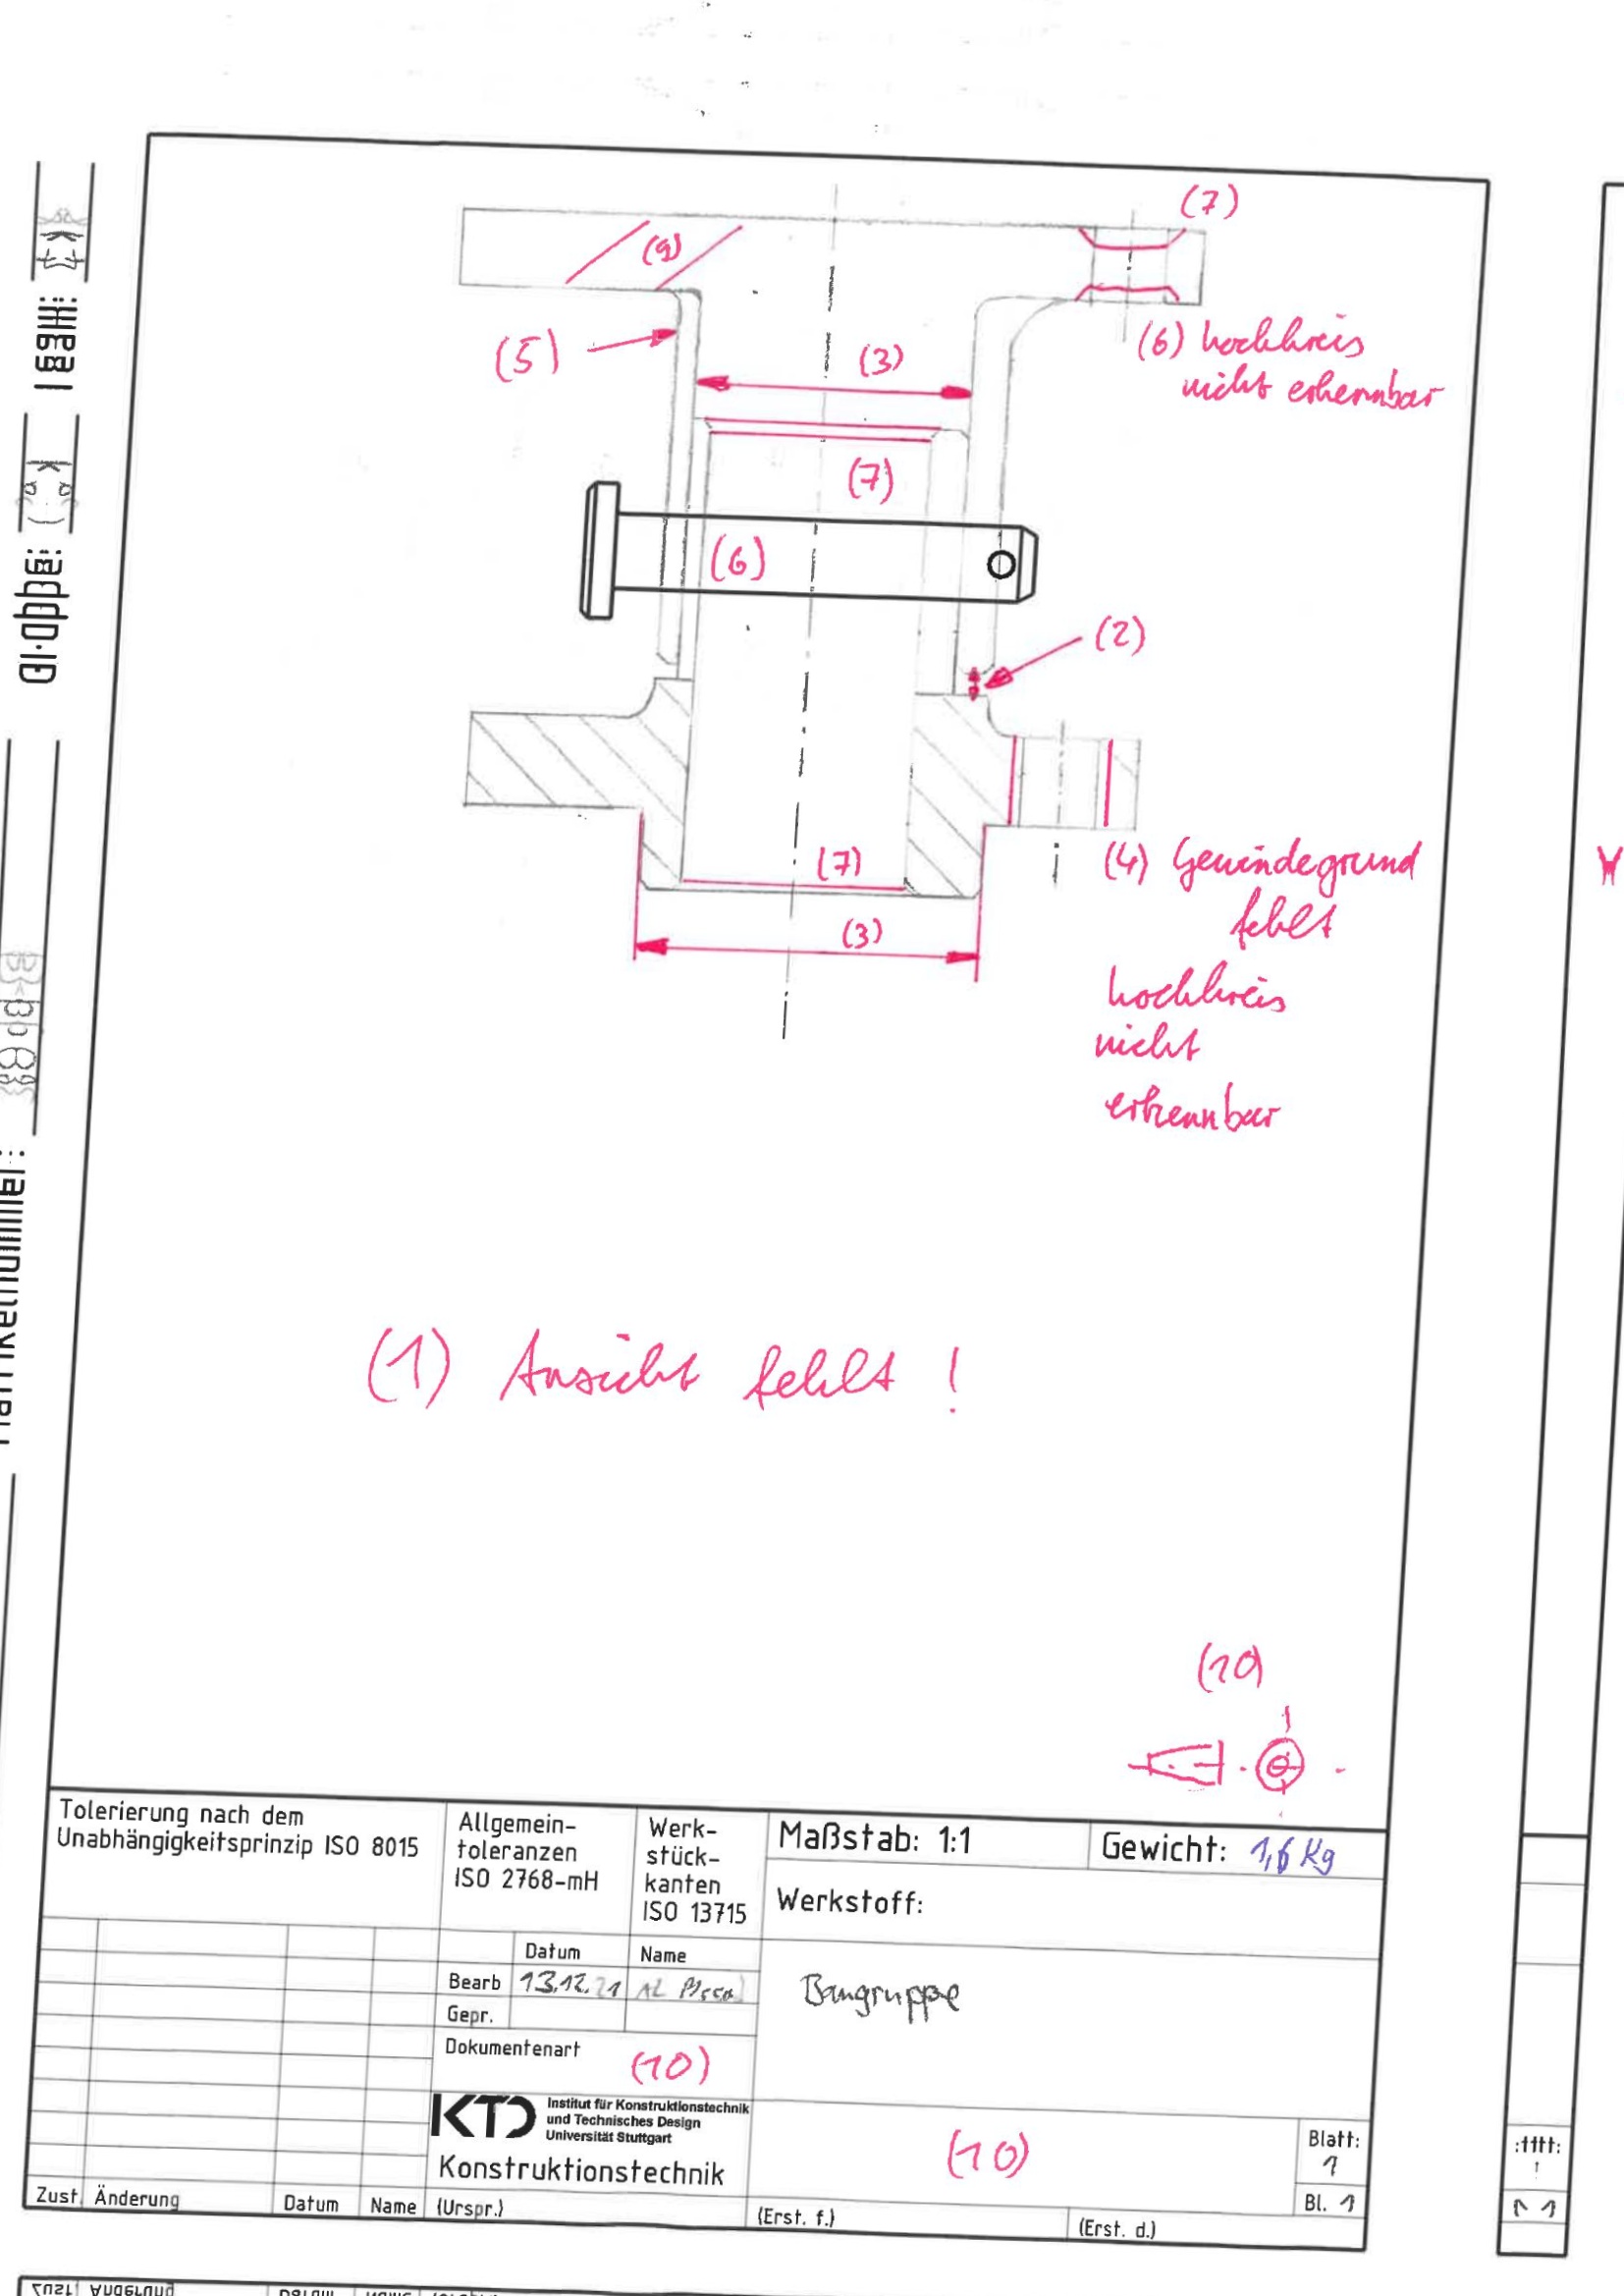 (7)
(9)
(5)
(3)
(6) Lochkreis
nicht erkennbar
(7)
(6)
(2)
(7)
(3)
(4) Gewindegrund
fehlt
Lochkreis
nicht
erkennbar
(1) Ansicht fehlt !
(10)
Tolerierung nach dem
Unabhängigkeitsprinzip ISO 8015
Allgemein-
toleranzen
ISO 2768-mH
Werk-
stück-
kanten
ISO 13715
Maßstab: 1:1
Gewicht: 1,6 Kg
Werkstoff:
Datum
Name
Bearb
13.12.21
Gepr.
Baugruppe
Dokumentenart
(10)
KTD
Institut für Konstruktionstechnik
und Technisches Design
Universität Stuttgart
Konstruktionstechnik
(10)
Blatt:
1
Bl. 1
Zust.
Änderung
Datum
Name
(Urspr.)
(Erst. f.)
(Erst. d.)